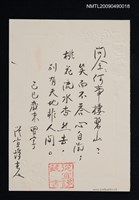 NMTL20090490018
問余何事棲碧山，
笑而不答心自閑；
桃花流水杳然去，
別有天地非人間。
己巳歲末 筆子